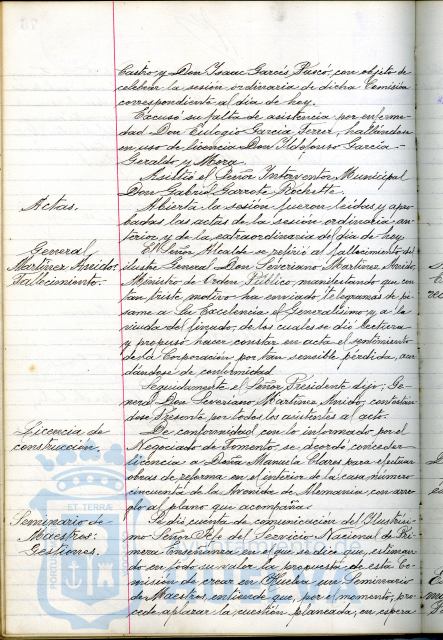 Castro, y Don Isaac Garcés Pascó, con objeto de
celebrar la sesión ordinaria de dicha Comisión
correspondiente al día de hoy.
Excusó su falta de asistencia por enferme-
dad Don Eulogio García Ferrer, hallándose
en uso de licencia Don Ildefonso García-
Geraldo y Mora.
Asistió el Señor Interventor Municipal
Don Gabriel Garrote Rochette.
Actas.
Abierta la sesión fueron leidas y apro-
badas las actas de la sesión ordinaria an-
terior y de la extraordinaria del día de hoy.
General
Martínez Anido:
Fallecimiento.
El Señor Alcalde se refirió al fallecimiento del
ilustre General Don Severiano Martínez Anido,
Ministro de Orden Público, manifestando que con
tan triste motivo ha enviado telegramas de pé-
same a Su Excelencia el Generalísimo y a la
viuda del finado, de los cuales se dió lectura
y propuso hacer constar en acta el sentimiento
de la Corporación por tan sensible pérdida, acor-
dándose de conformidad.
Seguidamente el Señor Presidente dijo: Ge-
neral Don Severiano Martínez Anido, contestán-
dose Presente por todos los asistentes al acto.
Licencia de
construcción.
De conformidad con lo informado por el
Negociado de Fomento, se acordó conceder
licencia a Doña Manuela Clares para efectuar
obras de reforma en el interior de la casa número
cincuenta de la Avenida de Alemania, con arre-
glo al plano que acompaña.
Seminario de
Maestros:
Gestiones.
Se dió cuenta de comunicación del Ilustrísi-
mo Señor Jefe del Servicio Nacional de Pri-
mera Enseñanza en el que se dice que, estiman-
do en todo su valor la propuesta de esta Co-
misión de crear en Huelva un Seminario
de Maestros, entiende que, por el momento, pro-
cede aplazar la cuestión planeada, en espera
ET TERRÆ